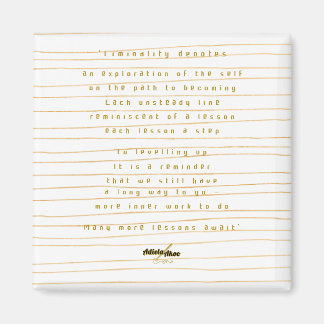 'Liminality denotes
an exploration of the self
on the path to becoming
Each unsteady line
reminiscent of a lesson
each lesson a step
to levelling up
It is a reminder
that we still have
a long way to go
more inner work to do
Many more lessons await'
Adiela Akoo